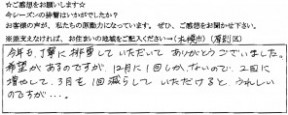 ☆ご感想をお願いします☆
今シーズンの排雪はいかがでしたか？
お客様の声が、私たちの原動力になっています。ぜひ、ご感想をお聞かせ下さい。
※差支えなければ、お住まいの地域をご記入ください→(札幌市)(厚別区)
今年も、丁寧に排雪していただいてありがとうございました。
希望があるのですが、12月に1回しかないので、2回に
増やして、3月を1回減らしていただけると、うれしい
のですが…。